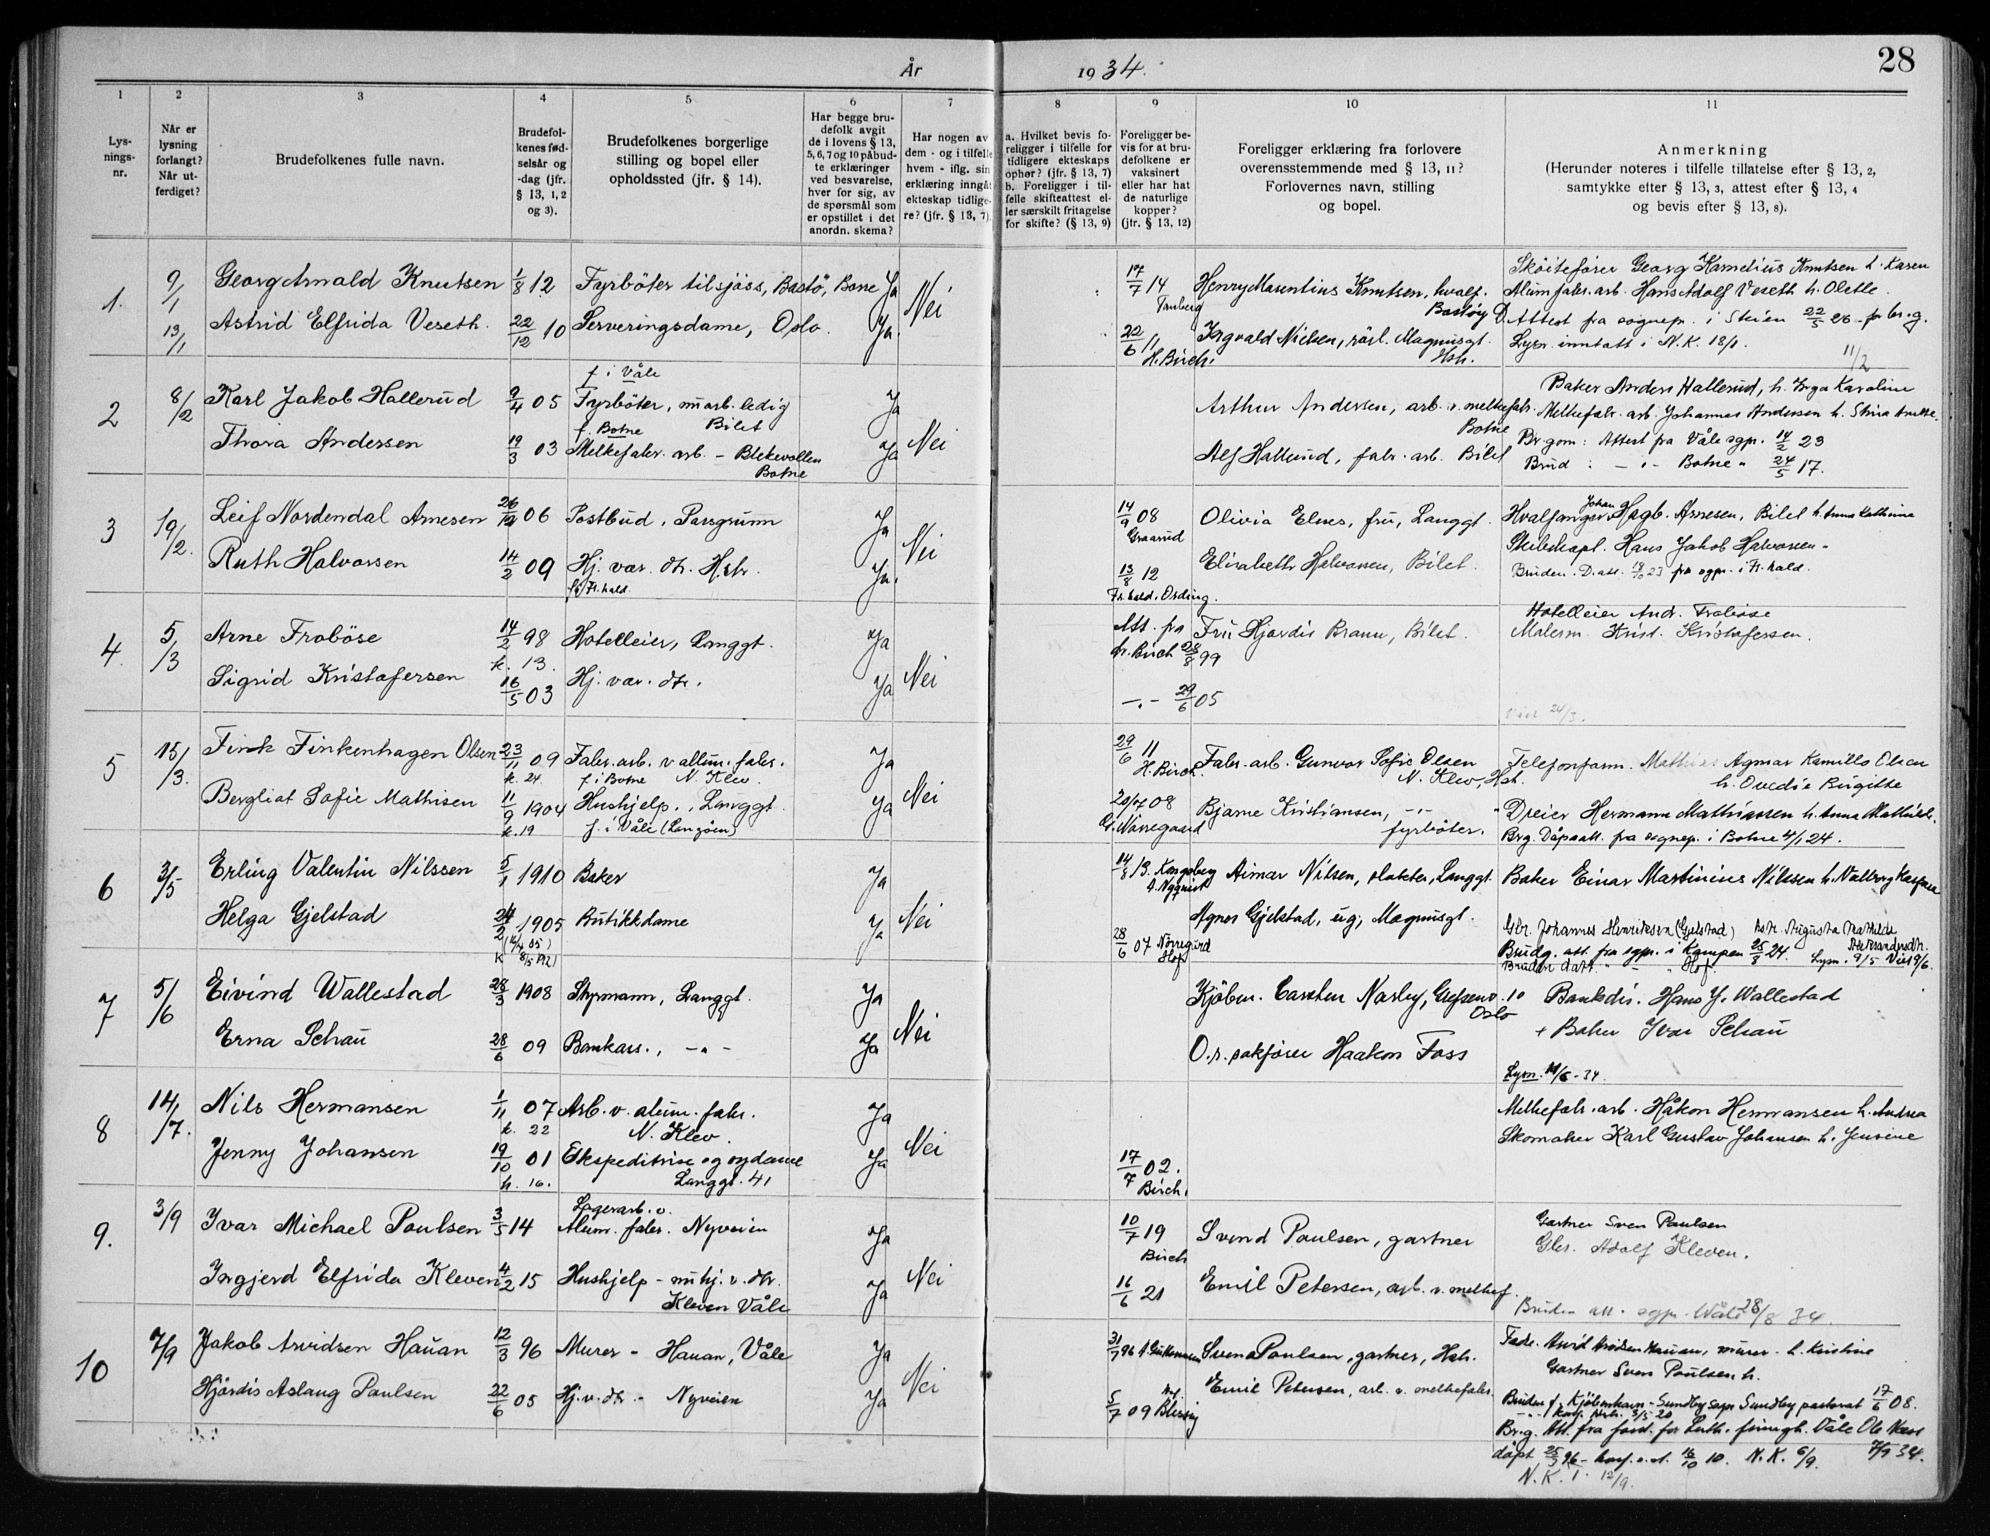 År 1934.
28
1 2 3 4 5 6 7 8 9 10 11
Lys-
nings-
nr.
Når er
lysning
forlangt?
Når ut-
ferdiget?
Brudefolkenes fulle navn.
Brudefol-
kenes fød-
selsår og
-dag (jfr.
§ 13, 1, 2
og 3).
Brudefolkenes borgerlige
stilling og bopel eller
opholdssted (jfr. § 14).
Har begge bru-
defolk avgit
de i lovens § 13,
5, 6, 7 og 10 påbud-
te erklæringer
ved besvarelse,
hver for sig, av
de spørsmål som
er opstillet i det
anordn. skema?
Har nogen av
dem - og i tilfelle
hvem - iflg. sin
erklæring inngåt
ekteskap tidlige-
re? (jfr. § 13, 7).
a. Hvilket bevis fo-
religger i tilfelle for
tidligere ekteskaps
ophør? (jfr. § 13, 7)
b. Foreligger i til-
felle skifteattest el-
ler særskilt fritagelse
for skifte? (§ 13, 9)
Foreligger be-
vis for at bru-
defolkene er
vaksinert
eller har hat
de naturlige
kopper?
(jfr. § 13, 12)
Foreligger erklæring fra forlovere
overensstemmende med § 13, 11?
Forlovernes navn, stilling
og bopel.
Anmerkning
(Herunder noteres i tilfelle tillatelse efter § 13, 2,
samtykke efter § 13, 3, attest efter § 13, 4
og bevis efter § 13, 8).
1. 9/1 Georg Arnald Knutsen 1/8 12 Fyrböter tilsjöss, Bastö, Borre Ja Nei 17/7 14 Henry Marentius Knutsen, hvalf. Bastöy
Sköitefører Georg Kornelius Knutsen h. Karen
Alum. fabr. arb. Hans Adolf Veseth h. Olette
13/1 Astrid Elfrida Veseth. 22/12 10 Serveringsdame, Oslo. Ja. 22/6 11 H. Birch. Ingvald Nielsen, rörl. Magnusgt. Hstr.
D. Attest fra sognepr. i Skien 22/5 26 for br.g.
Lysn. inntatt i N.K. 18/1. 11/2
2 8/2 Karl Jakob Hallerud 9/4 05 f. i Våle
Fyrböter, nu arb. ledig Bilet Ja Nei Arthur Andersen, arb. v. melkefabr. Botne
Baker Anders Hallerud, h. Inga Karoline
Melkefabr. arb. Johannes Andersen h. Stina
Thora Andersen 19/3 03 f. Botne
Melkefabr. arb. - Blekevollen Botne Ja Alf Hallerud, fabr. arb. Bilet
Br.gom: Attest fra Våle sgpr. 14/2 23
Brud : - " - Botne " 24/5 17.
3 19/2. Leif Nordendal Arnesen 26/12 06 Postbud, Porsgrunn Ja Nei 14/9 08 Graarud Olivia Elnes, fru, Langgt.
Hvalfanger Johan Hagb. Arnesen, Bilet h. Anna Kathrine
Ruth Halvorsen 14/2 09 Hj. vær. dtr. Hstr. Ja. 13/8 12 Fr.hald. Elisabeth Halvorsen, Bilet.
Skibskapt. Hans Jakob Halvorsen
Bruden. D. att. 18/10 23 fra sgpr. i Fr.hald.
4. 5/3 Arne Froböse 14/2 98 k. 13. Hotelleier, Langgt. Ja Nei Att. fra h. Birch 28/8 99 Fru Hjørdis Braun, Bilet.
Hotelleier Andr. Froböse
Malerm. Krist. Kristofersen.
Sigrid Kristofersen 16/5 03 Hj. vær. dtr. Ja - " - 29/6 05
Viet 24/3.
5 15/3. Finck Finkenhagen Olsen 23/11 09 k. 24. Fabr. arb. v. allum. fabr.
f i Botne N. Klev. Ja Nei 29/6 11 H. Birch Fabr. arb. Gunvor Sofie Olsen N. Klev, Hst.
Telefonform. Mathias Agmar Kamillo Olsen
h. Ovedie Birgitte
Bergliot Sofie Mathisen 11/9 1904 k. 19 Hushjelp, Langgt.
f. i Våle (Langøen) Ja 20/7 08 G. Nörregaard Bjarne Kristiansen, - " - fyrbøter.
Dreier Hermann Mathisen h. Anna Mathilde.
Brg. Dåpsatt. fra sognep. i Botne 4/1 24.
6 3/5 Erling Valentin Nilssen 5/1 1910 Baker Ja Nei 14/8 13. Kongsberg A. Nyquist Aimar Nilsen, slakter, Langgt.
Baker Einar Martinius Nilssen h. Valborg
Helga Gjelstad 24/2 1905 Butikkdame Ja 28/6 07 Nörregård Hof Agnes Gjelstad, ug, Magnusgt.
Gbr. Johannes Henriksen (Gjelstad) Augusta Mathilde
Brudg. att. fra sgpr. i Kampen 25/8 24. Lysn. 9/5 Viet 9/6.
Bruden d.att. " - " Hof.
7 5/6 Eivind Wallestad 28/3 1908 Styrmann, Langgt. Ja Nei Kjöbm. Carsten Narby, Grefsenv. 10 Oslo
Bankdir. Hans J. Wallestad
Erna Schau 28/6 09 Bankass., - " - Ja O.r. sakfører Haakon Foss
+ Baker Ivar Schau
Lysn. 14/6 - 34.
8 14/7. Nils Hermansen 1/11 07 k. 22 Arb. v. alum. fabr. N. Klev. Ja Nei
Melkefabr. arb. Håkon Hermansen h. Andrea
Skomaker Karl Gustav Johansen h. Jensine
Jenny Johansen 19/10 01 k. 16. Ekspeditrise og sydame Langgt. 41 Ja 17/7 02. Birch.
9. 3/9 Ivar Michael Poulsen 3/5 14 Lagerarb. v.
Alum. fabr. Nyveien Ja Nei 10/7 19 Birch Svend Poulsen, gartner
Gartner Sven Poulsen
Gbr. Adolf Kleven.
Ingjerd Elfrida Kleven 4/2 15 Hushjelp - nu hj. v. dtr. Kleven Våle Ja 16/6 21 Emil Petersen, arb. v. melkef.
Bruden att. sgpr. Våle 28/8 34.
10 7/9 Jakob Arvidsen Hauan 12/3 96 Murer - Hauan, Våle Ja Nei 31/7 96 Svend Poulsen, gartner, Hstr.
Fade. Arvid Arvidsen Hauan, murer - h. Kristine
Gartner Sven Poulsen h.
Hjördis Aslaug Paulsen 22/6 05 Hj. v. dtr. - Nyveien Ja 5/7 09 Emil Petersen, arb. v. melkefabr.
Bruden f. Kjöbenhavn - Sundby sogn Sundby pastorat 17/6 08.
- " - konf. Hstr. 3/5 20
Br.g. Att. fra forst. for Luth. frimgh. Våle Ole 7/9 34.
döpt 25/5 96 - konf. s.st. 16/10 10. N.K. 6/9.
N.K. 1. 12/9.